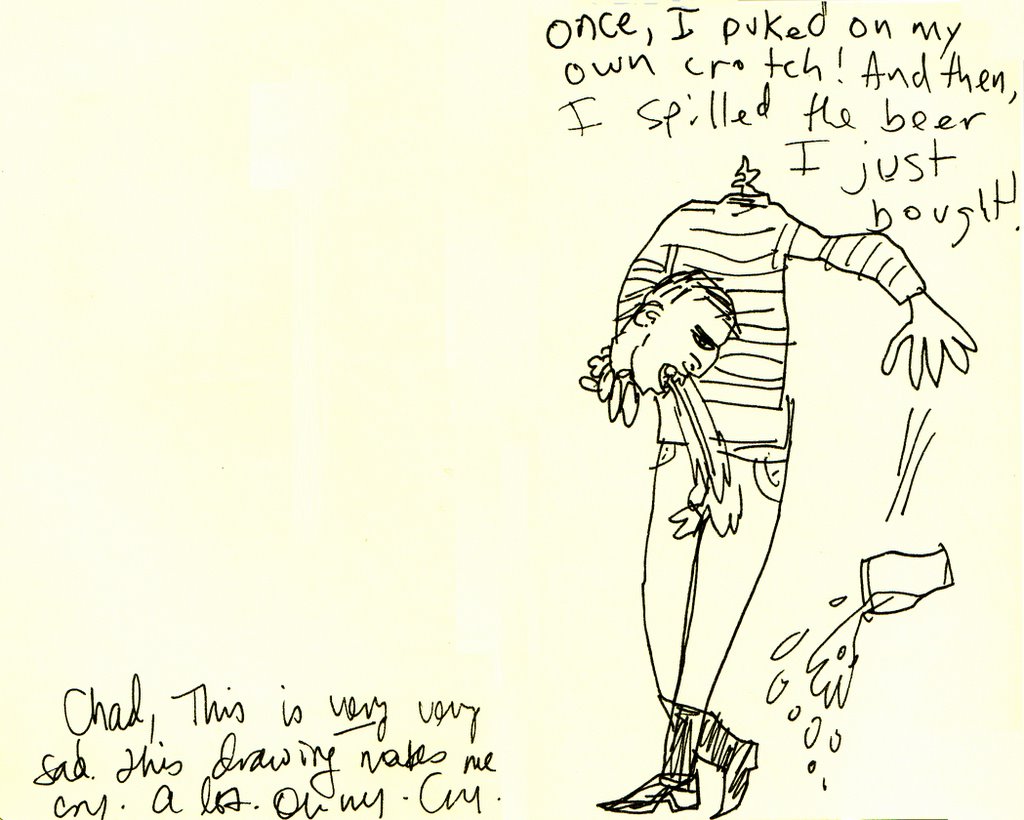 once, I puked on my
own crotch! And then,
I spilled the beer
I just
bought!
Chad, This is very very
sad. this drawing makes me
cry. a lot. Oh my. Cry.